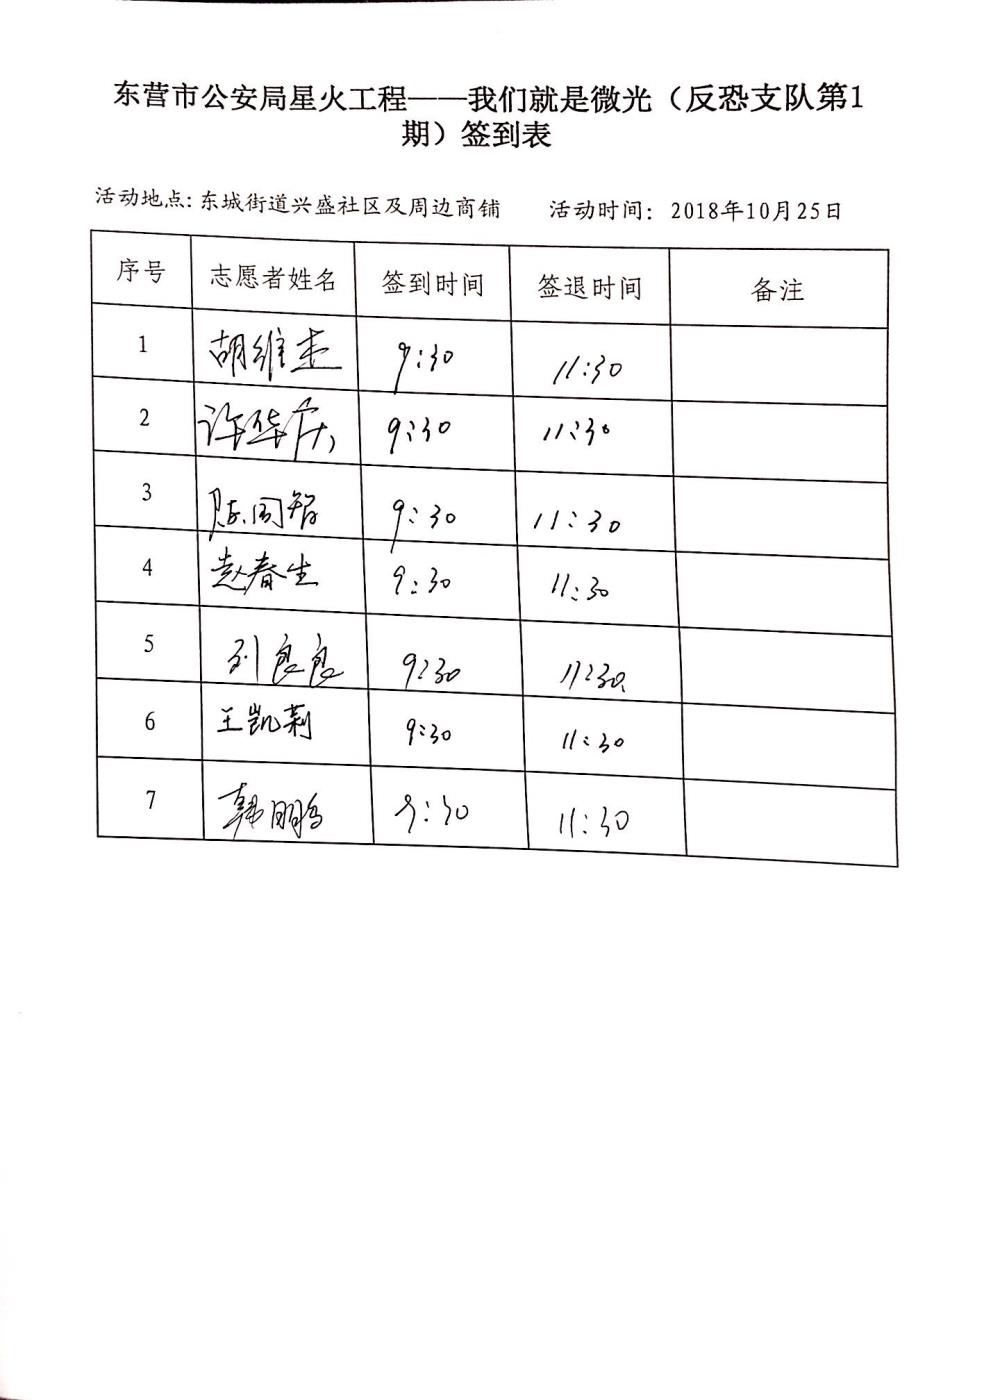 东营市公安局星火工程——我们就是微光（反恐支队第1
期）签到表
活动地点: 东城街道兴盛社区及周边商铺 活动时间: 2018年10月25日
序号 志愿者姓名 签到时间 签退时间 备注
1 胡维杰 9:30 11:30
2 许华庆 9:30 11:30
3 陈同智 9:30 11:30
4 赵春生 9:30 11:30
5 刘良良 9:30 11:30
6 王凯莉 9:30 11:30
7 韩鹏 9:30 11:30